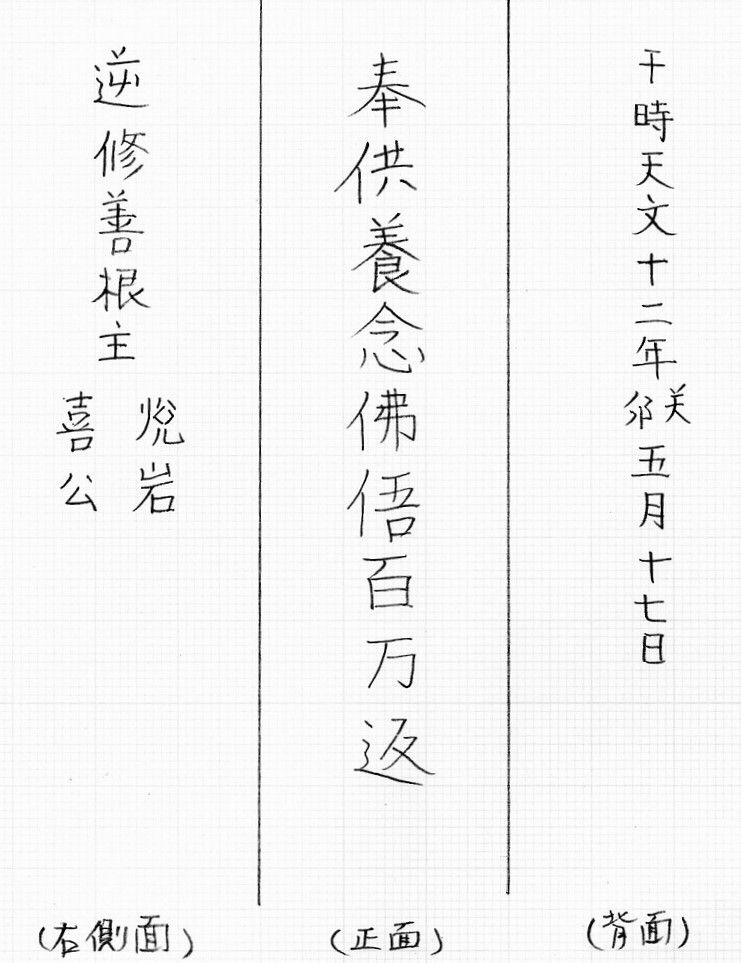 干時天文十二年关夘五月十七日
(背面)
奉供養念佛俉百万返
(正面)
逆修善根主
悦岩
喜公
(右側面)